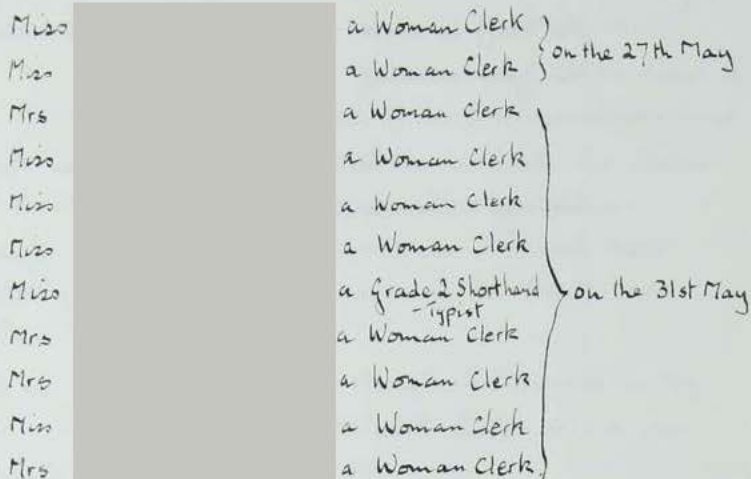 Miss a Woman Clerk
Miss a Woman Clerk } on the 27th May
Mrs a Woman Clerk
Miss a Woman Clerk
Miss a Woman Clerk
Miss a Woman Clerk
Miss a Grade 2 Shorthand
-Typist } on the 31st May
Mrs a Woman Clerk
Mrs a Woman Clerk
Miss a Woman Clerk
Mrs a Woman Clerk.